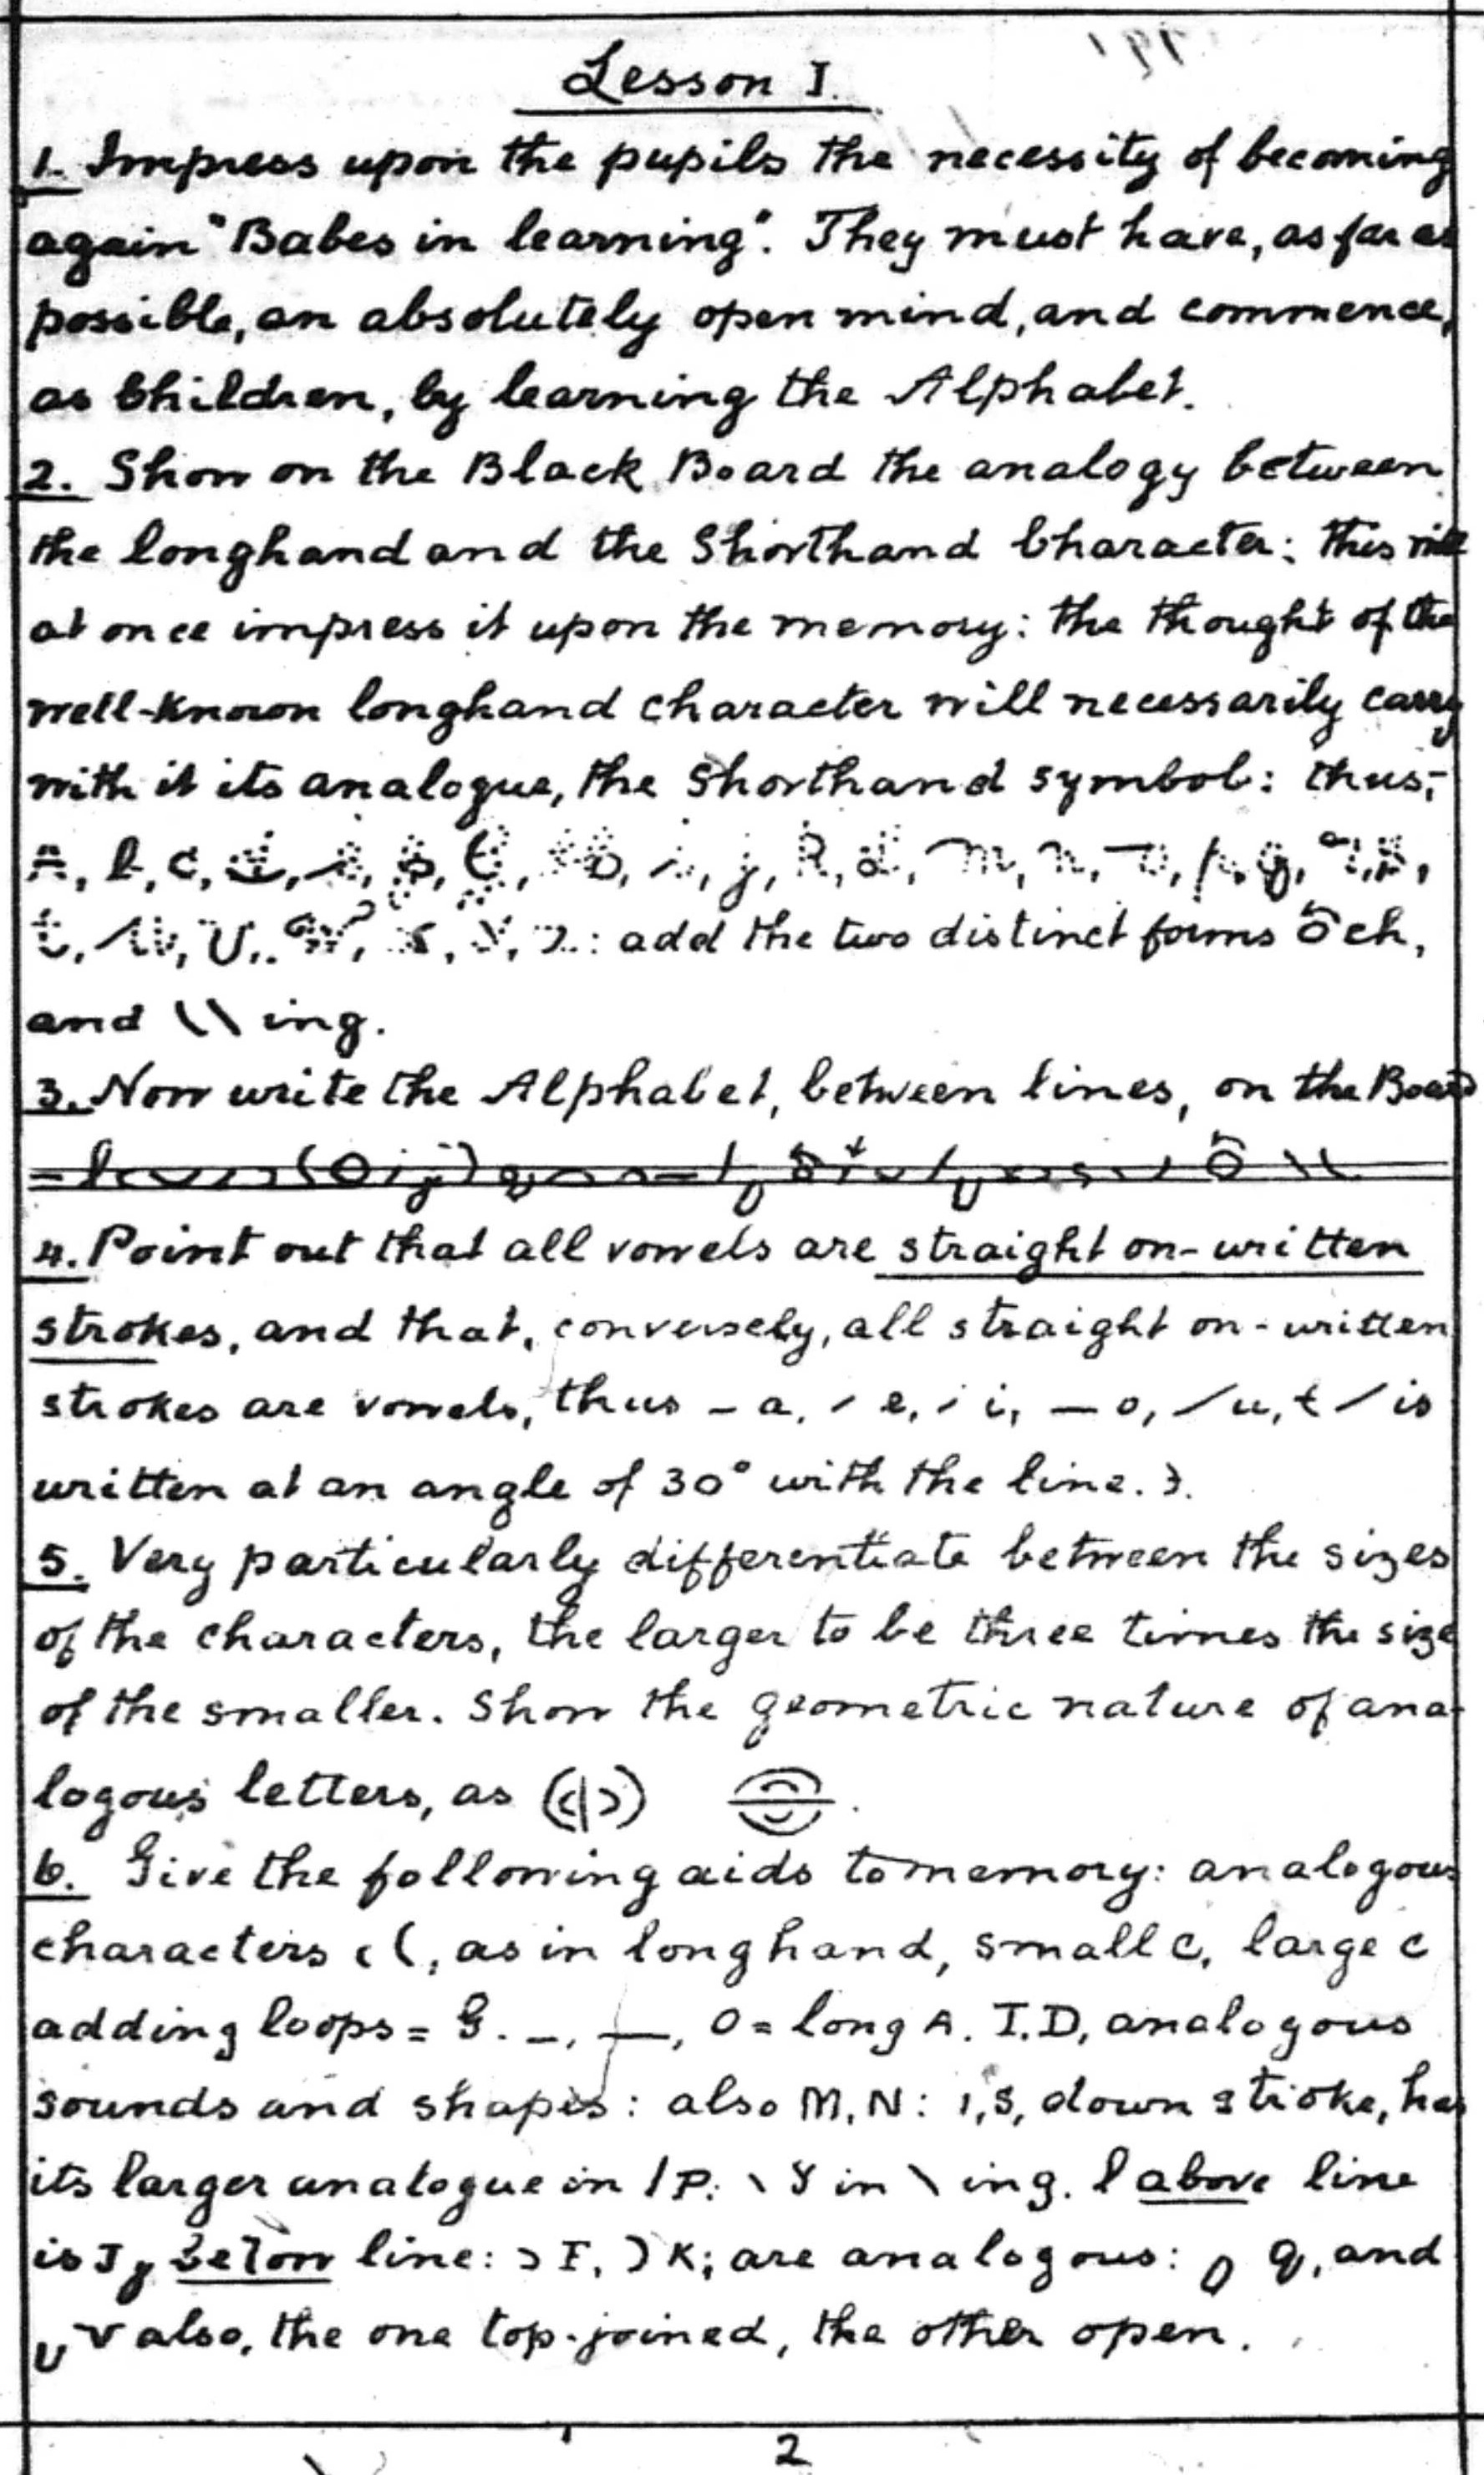 Lesson I.
1. Impress upon the pupils the necessity of becoming
again "Babes in learning". They must have, as far as
possible, an absolutely open mind, and commence,
as Children, by learning the Alphabet.
2. Show on the Black Board the analogy between
the longhand and the Shorthand Character: this will
at once impress it upon the memory: the thought of the
well-known longhand character will necessarily carry
with it its analogue, the Shorthand symbol: thus:-
t, u, v, w, x, y, z: add the two distinct forms ch,
and \\ ing.
3. Now write the Alphabet, between lines, on the Board
4. Point out that all vowels are straight on-written
strokes, and that, conversely, all straight on-written
strokes are vowels, thus – a, / e, / i, — o, / u, t / is
written at an angle of 30° with the line.
5. Very particularly differentiate between the sizes
of the characters, the larger to be three times the size
of the smaller. Show the geometric nature of ana-
logous letters, as
6. Give the following aids to memory: analogous
characters c (, as in longhand, small c, large c
adding loops = G. –, —, O = long A. I.D, analogous
sounds and shapes: also M, N: ı, S, down stroke, has
its larger analogue in / P: \ Y in \ ing. l above line
is J, below line: ɔ F, ) K; are analogous: Q, and
V also, the one top-joined, the other open.
2